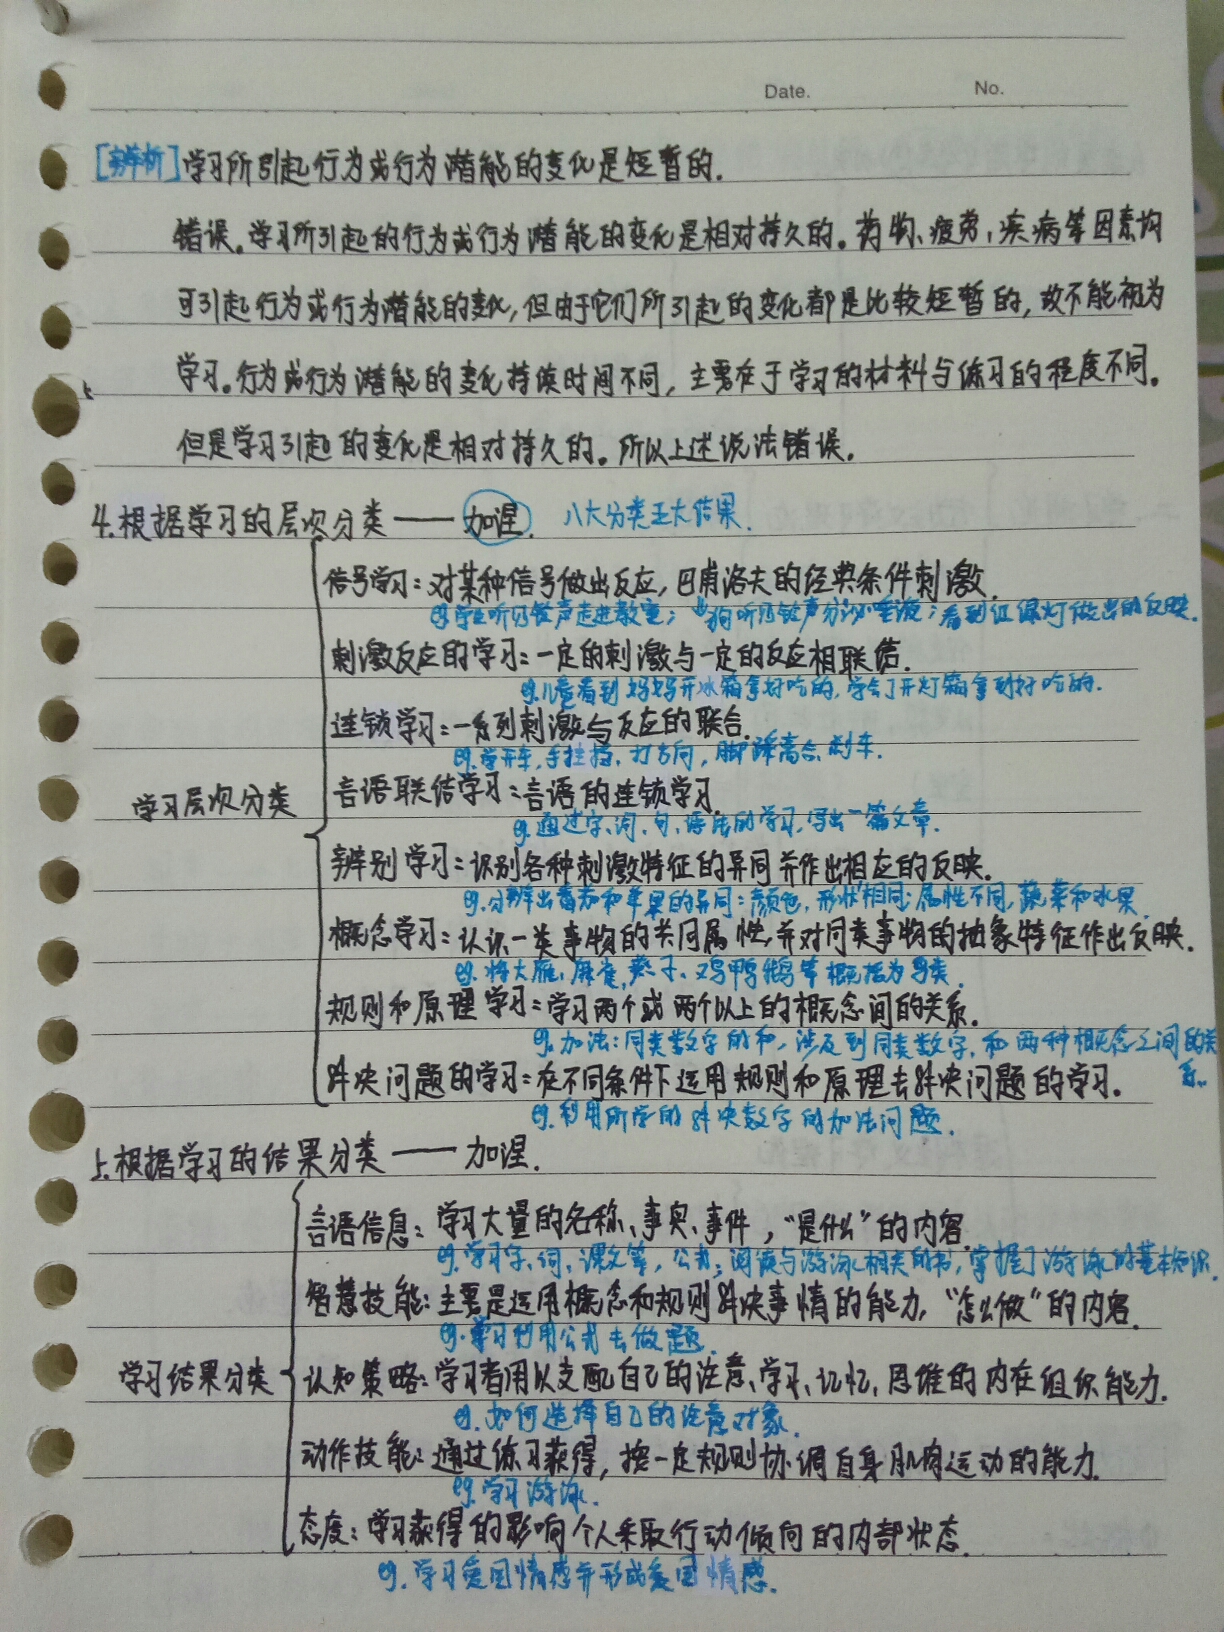 Date.
No.
[辨析]学习所引起行为或行为潜能的变化是短暂的.
错误。学习所引起的行为或行为潜能的变化是相对持久的。药物、疲劳、疾病等因素均
可引起行为或行为潜能的变化,但由于它们所引起的变化都是比较短暂的,故不能视为
学习。行为或行为潜能的变化持续时间不同,主要在于学习的材料与练习的程度不同。
但是学习引起的变化是相对持久的。所以上述说法错误.
4.根据学习的层次分类——加涅. 八大分类五大结果.
信号学习:对某种信号做出反应,巴甫洛夫的经典条件刺激.
eg.学生听见铃声走进教室;狗听见铃声分泌唾液;看到红绿灯做出的反映.
刺激反应的学习:一定的刺激与一定的反应相联结.
eg.儿童看到妈妈开冰箱拿好吃的,学会了开灯箱拿到好吃的.
连锁学习:一系列刺激与反应的联合.
eg.学开车,手挂挡,打方向,脚踩离合.刹车.
学习层次分类
言语联结学习:言语的连锁学习.
eg.通过字、词、句、语法的学习,写出一篇文章.
辨别学习:识别各种刺激特征的异同并作出相应的反映.
eg.分辨出番茄和苹果的异同:颜色,形状相同;属性不同,蔬菜和水果.
概念学习:认识一类事物的共同属性,并对同类事物的抽象特征作出反映.
eg.将大雁、麻雀,燕子、鸡鸭鹅等概括为鸟类.
规则和原理学习:学习两个或两个以上的概念间的关系.
eg.加法:同类数字的和,涉及到同类数字,和两种概念之间的关
系..
解决问题的学习:在不同条件下运用规则和原理去解决问题的学习.
eg.利用所学的解决数字的加法问题.
5.根据学习的结果分类——加涅.
言语信息:学习大量的名称、事实、事件,“是什么”的内容.
eg.学习字、词、课文等,公式;阅读与游泳相关的书,掌握了游泳的基本知识.
智慧技能:主要是运用概念和规则解决事情的能力,“怎么做”的内容.
eg.学习利用公式去做题.
学习结果分类
认知策略:学习者用以支配自己的注意、学习、记忆,思维的内在组织能力.
eg.如何选择自己的注意对象.
动作技能:通过练习获得,按一定规则协调自身肌肉运动的能力.
eg.学习游泳.
态度:学习获得的影响个人采取行动倾向的内部状态.
eg.学习爱国情感并形成爱国情感.